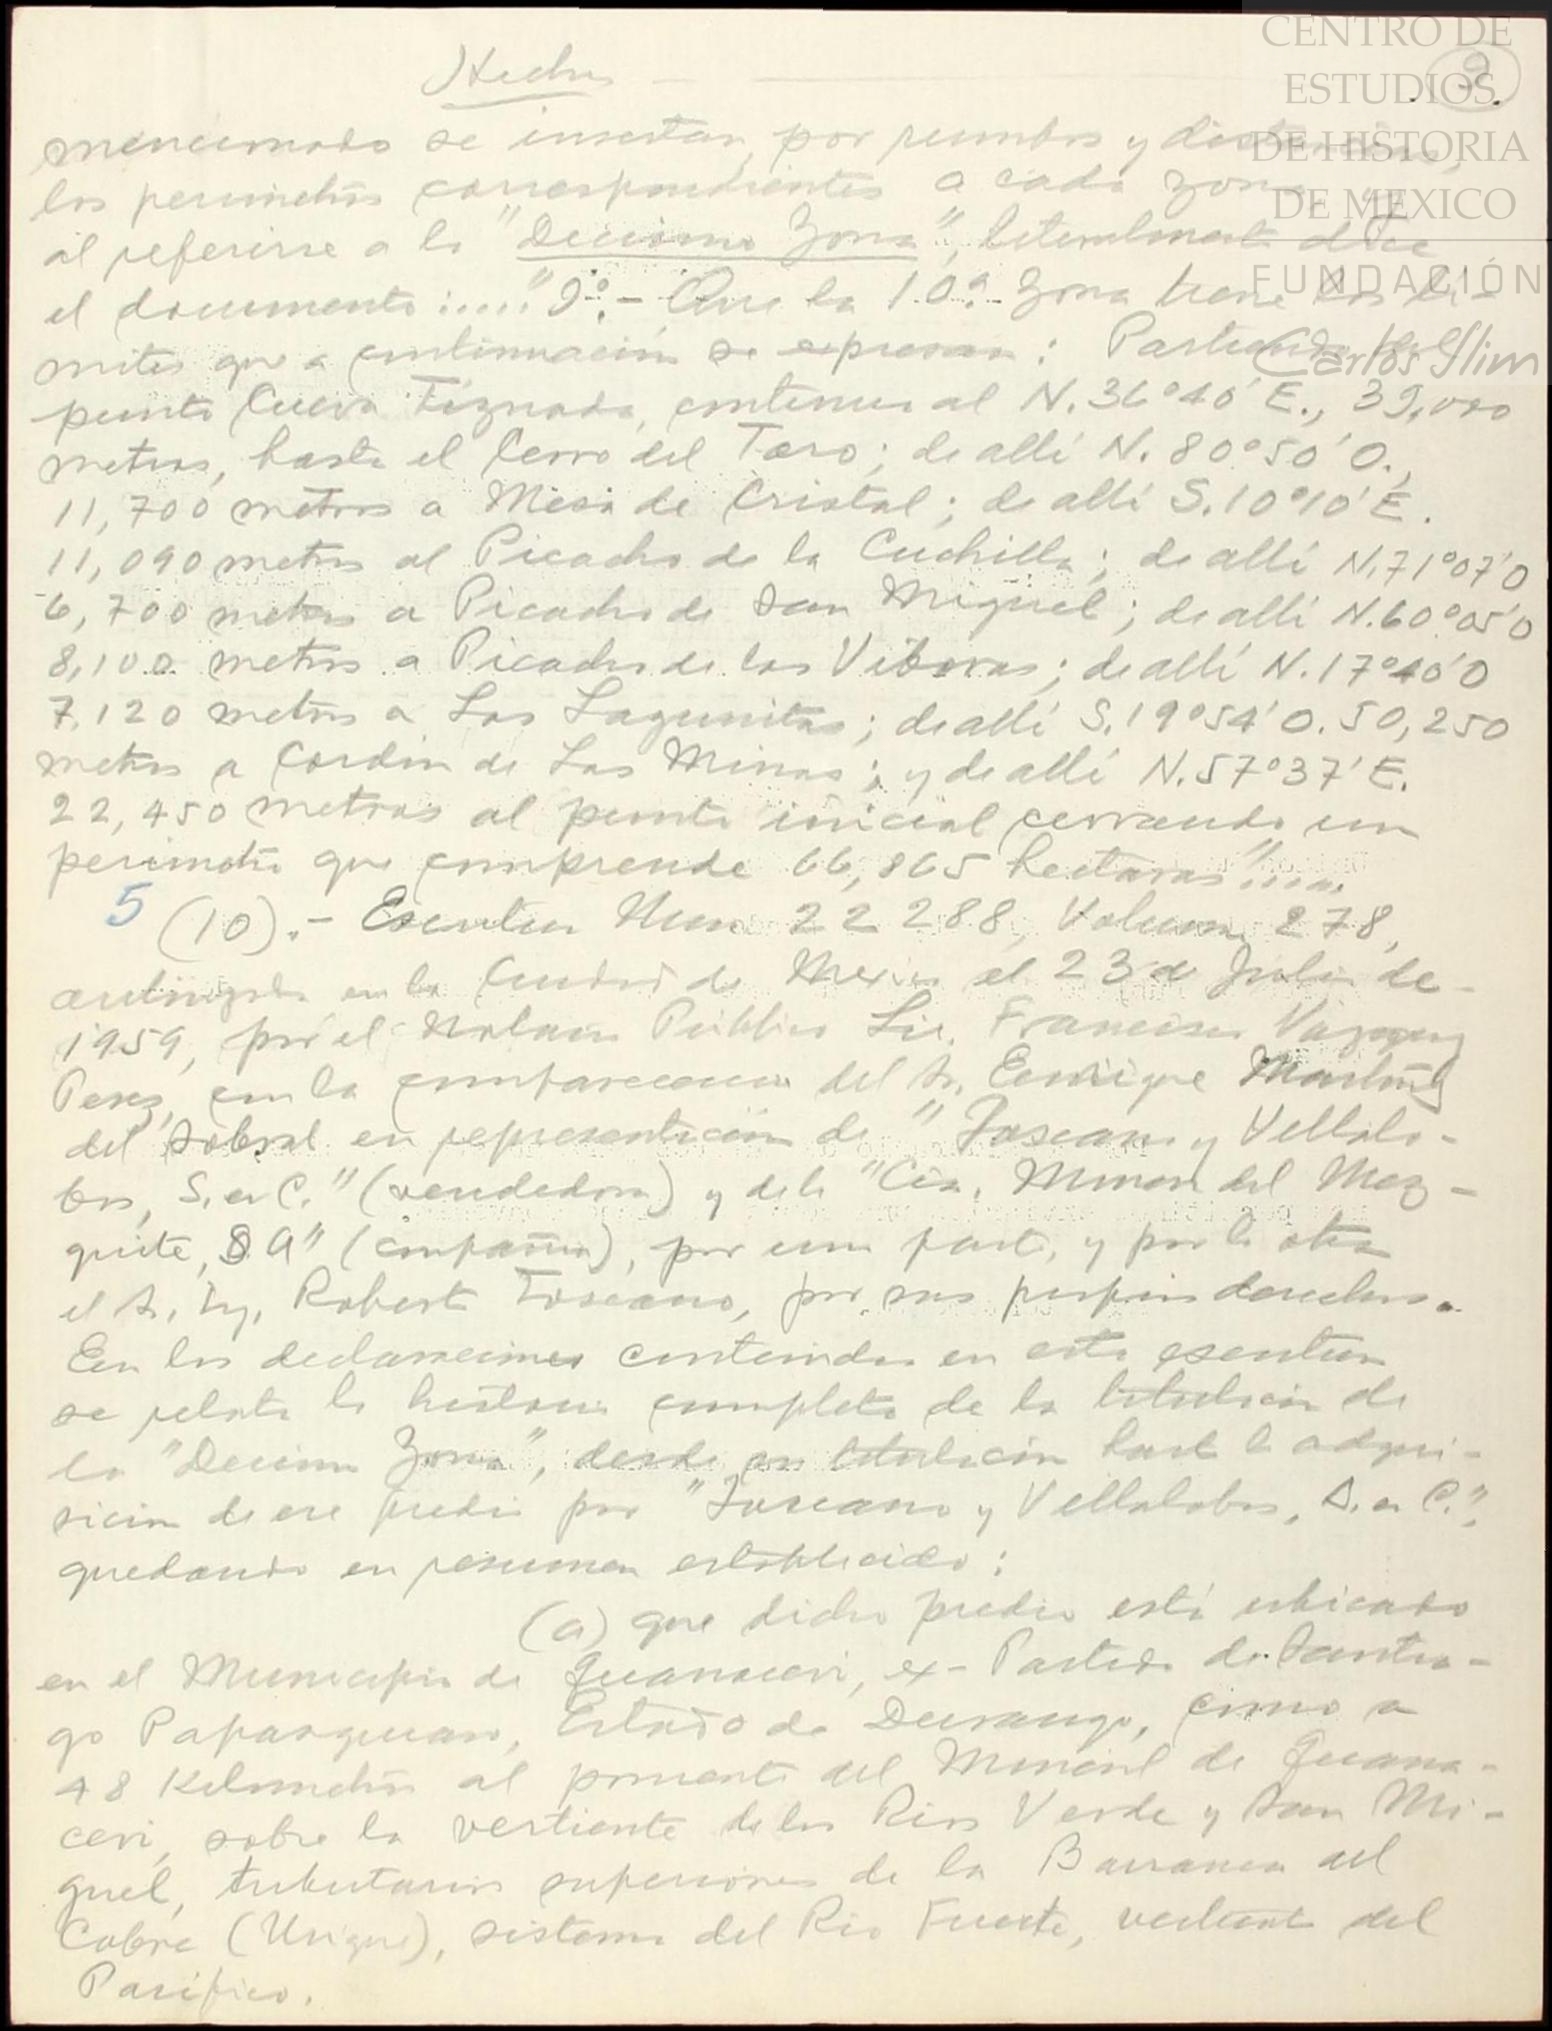 Hechos
9.
CENTRO DE
ESTUDIOS
DE HISTORIA
DE MEXICO
FUNDACIÓN
Carlos Slim
mencionado se insertan, por rumbos y distancias,
los perimetros correspondientes a cada zona, y
al referirse a la "Decima Zona", literalmente dice
el documento:...."9°.- Que la 10ª. Zona tiene los li-
mites que a continuación se expresan: Partiendo del
punto Cueva Tiznada, continua al N.36°40' E., 39,000
metros, hasta el Cerro del Toro; de allí N. 80°50' O.,
11,700 metros a Mesa de Cristal; de allí S.10°10' E.
11,090 metros al Picacho de la Cuchilla; de allí N.71°07'O
6,700 metros a Picacho de San Miguel; de allí N.60°05'O
8,100 metros a Picacho de las Viboras; de allí N.17°40'O
7,120 metros a Las Lagunitas; de allí S.19°54' O. 50,250
metros a Cordon de Las Minas; y de allí N.57°37' E.
22,450 metros al punto inicial cerrando un
perimetro que comprende 66,865 hectaras"....
5 (10).- Escritura Num. 22 288, Volumen 278,
autorizada en la Ciudad de Mexico el 23 de Julio de
1959, por el Notario Público Lic. Francisco Vazquez
Perez, con la comparecencia del Sr. Enrique Martinez
del Sobral en representación de "Toscano y Villalo-
bos, S. en C." (vendedora) y de la "Cia. Minera del Mez-
quite, S.A" (compañia), por una parte, y por la otra
el Sr. Ing. Roberto Toscano, por sus propios derechos.
En las declaraciones contenidas en esta escritura
se relata la historia completa de la titulación de
la "Decima Zona", desde su titulación hasta la adqui-
sicion de ese predio por "Toscano y Villalobos, S. en C.",
quedando en resumen establecido:
(a) que dicho predio está ubicado
en el Municipio de Guanacevi, ex-Partido de Santia-
go Papasquiaro, Estado de Durango, como a
48 Kilometros al poniente del Mineral de Guana-
cevi, sobre la vertiente de los Rios Verde y San Mi-
guel, tributarios superiores de la Barranca del
Cobre (Urique), sistema del Rio Fuerte, vertiente del
Pacifico.